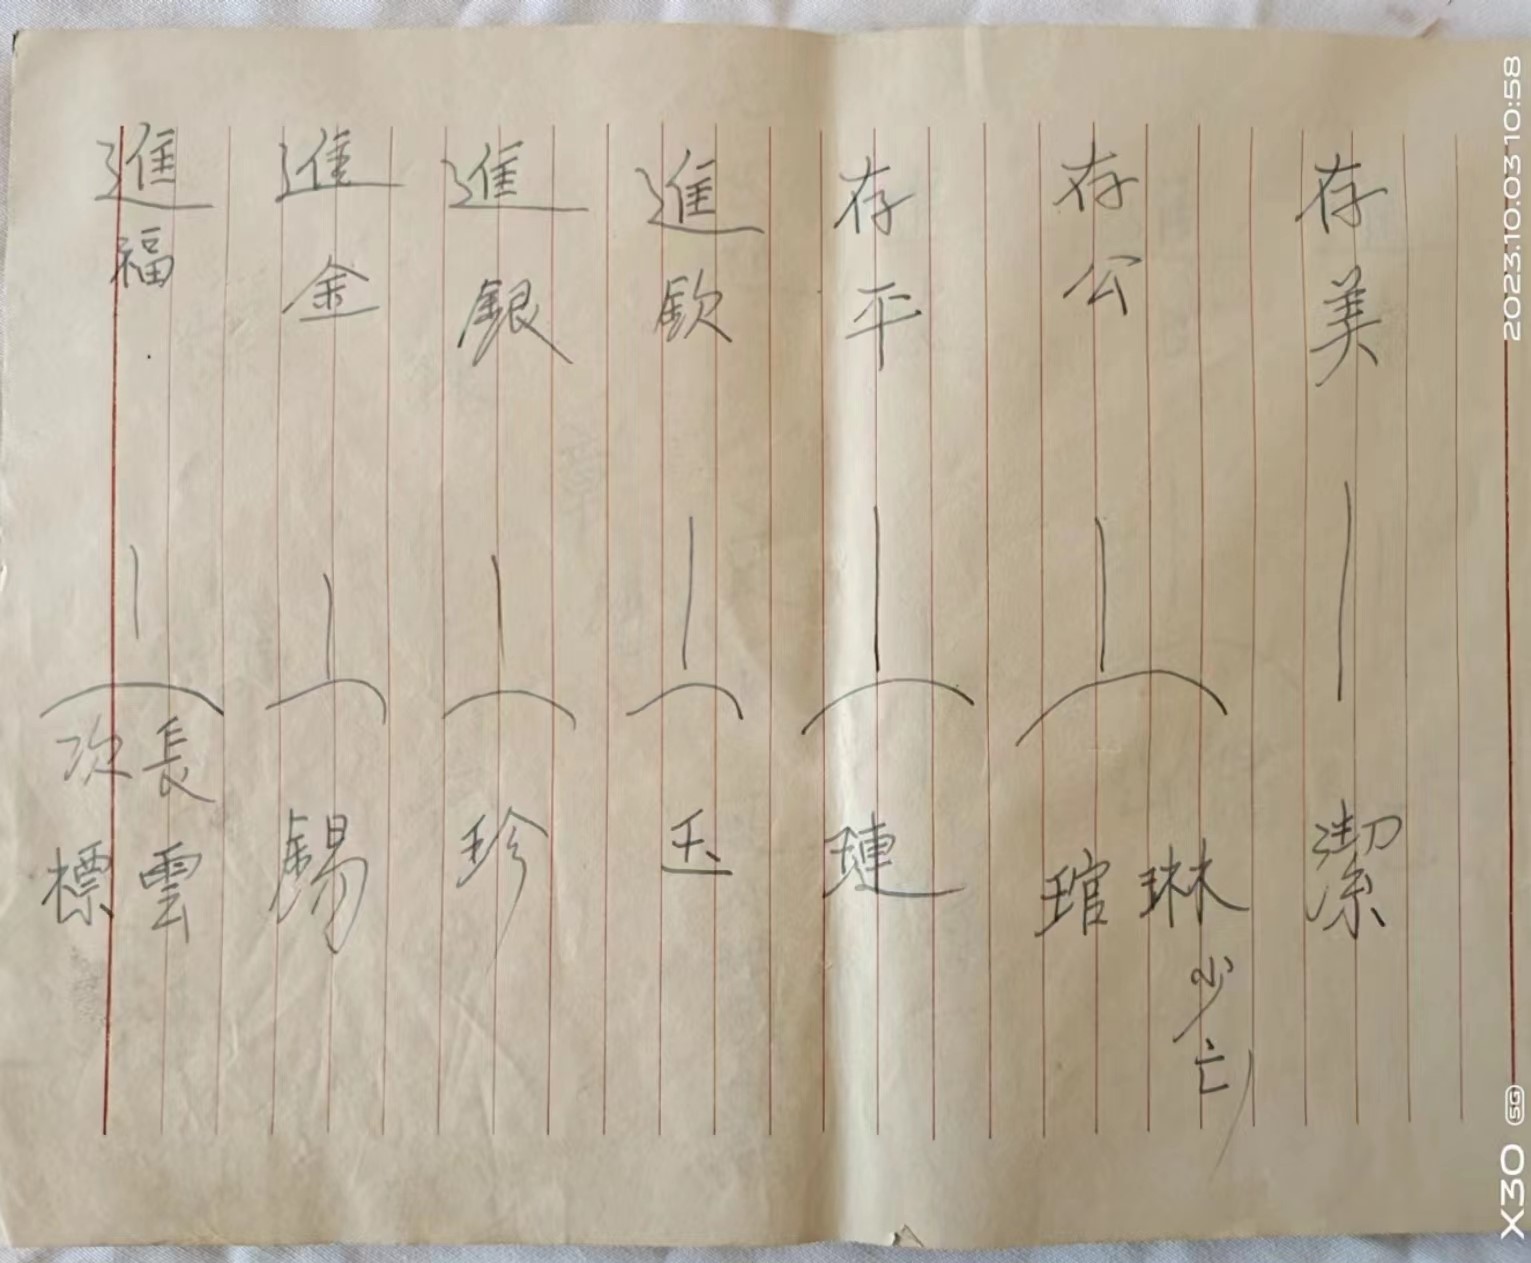 存美
潔
存公
琳 少亡
琯
存平
璉
進欽
玉
進銀
珍
進金
錫
進福
長 雲
次 標
2023.10.03 10:58
X30 5G